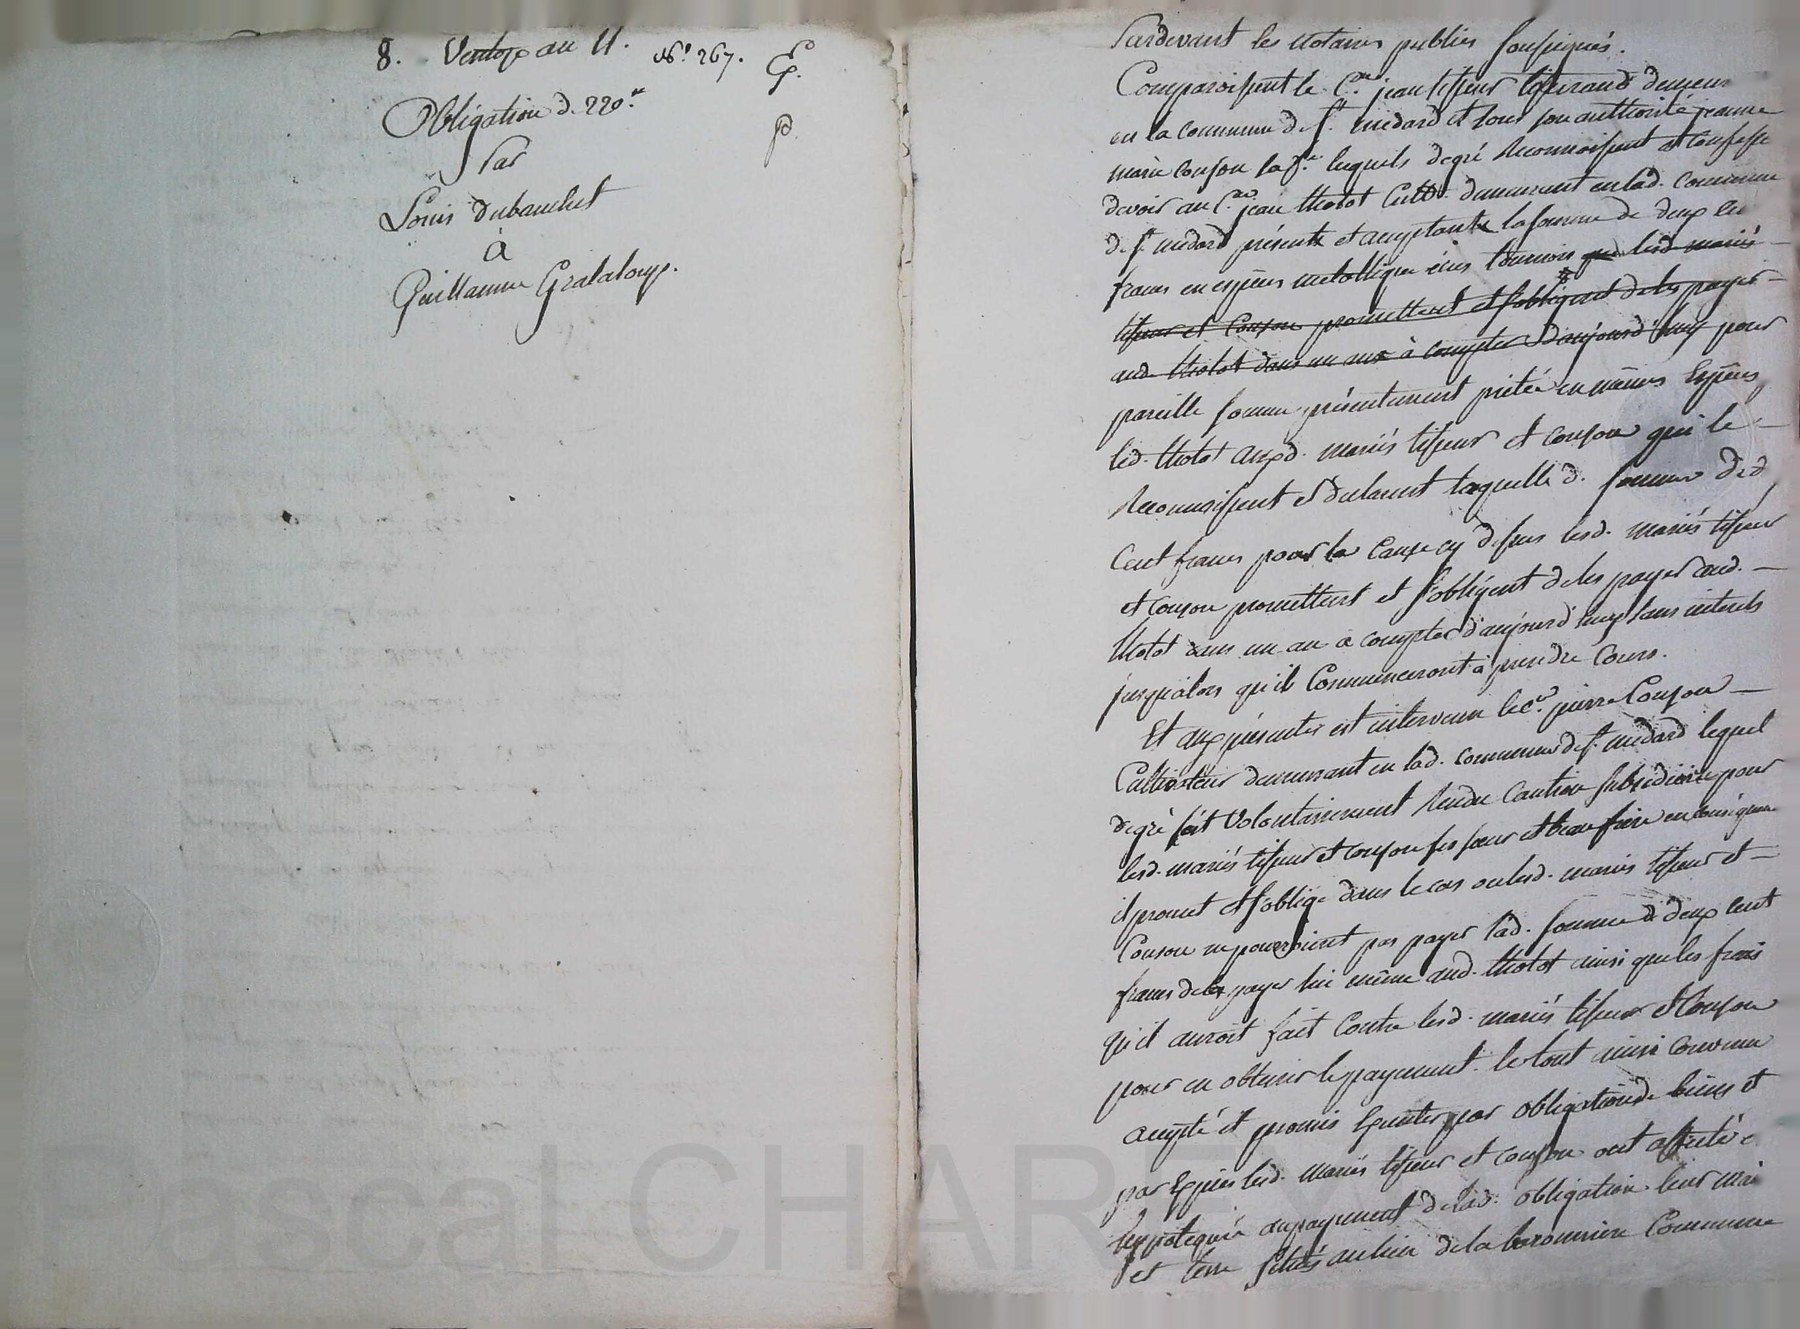 8. Ventose an 11. N° 267. E.
p.
Obligation de 220.#
Par
Louis Dubanchet
à
Guillaume Grataloup.
Pardevant les Notaires publics soussignés.
Comparoissent le C.en jean tisseur tisserand demeur
en la commune de st. medard et sous son authorité jeanne
marie couson sa f.e lesquels de gré Reconnoissent et Confesse
devoir au C.en jean thotot Cult. demeurant en lad. commune
de st. medard présent et acceptant la somme de deux cen
francs en espèces metallique écus tournois que lesd. mariés
tisseur et Couson promettent et s'obligent de les payer
aud. thotot dans un an à compter d'aujourd'huy pour
pareille somme présentement prêtée en mêmes Espèces
led. thotot auxd. mariés tisseur et couson qui le
Reconnoissent et déclarent laquelle d. somme de d
Cent francs pour la Cause cy dessus lesd. mariés tisseur
et couson promettent et s'obligent de les payer aud.
thotot dans un an à compter d'aujourd'huy sans interets
jusqu'alors qu'ils Commenceront à prendre Cours.
Et aux présentes est intervenu le C.en pierre Couson
Cultivateur demeurant en lad. commune de st. medard lequel
de gré s'est Volontairement Rendu Caution subsidiaire pour
lesd. mariés tisseur et couson ses sœur et beau frère en conséquence
il promet et s'oblige dans le cas ou lesd. mariés tisseur et
Couson ne pourroient pas payer lad. somme de deux cent
francs de les payer lui même aud. thotot ainsi que les frais
qu'il auroit fait Contre lesd. mariés tisseur et Couson
pour en obtenir le payement. le tout ainsi convenu
accepté et promis Exécuter par obligation de biens et
par Exprès lesd. mariés tisseur et couson ont affecté
hypotequé au payement de lad. obligation leur mai
et terre situés au lieu de la baronnière Commune
Pascal CHAREY